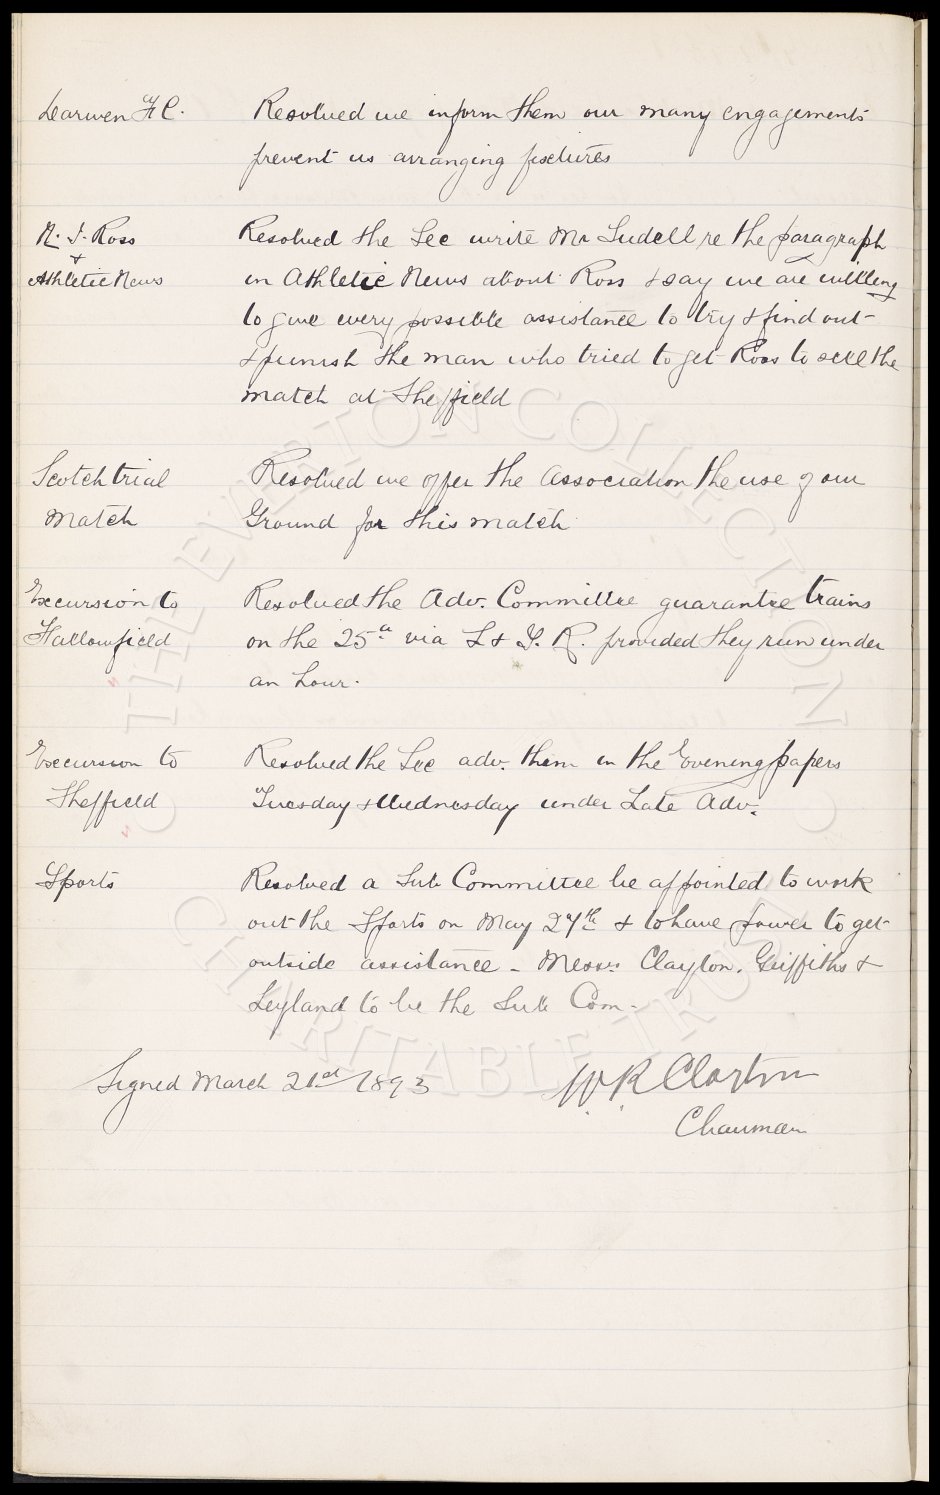 Darwen F C. Resolved we inform them our many engagements
prevent us arranging fixtures
N. J. Ross Resolved the Sec write Mr Sudell re the paragraph
+
Athletic News in Athletic News about Ross + say we are willing
to give every possible assistance to try + find out
+ punish the man who tried to get Ross to sell the
match at Sheffield
Scotch trial Resolved we offer the Association the use of our
Match Ground for this match
Excursion to Resolved the Adv. Committee guarantee trains
Fallowfield on the 25th via L + Y. R. provided they run under
an hour.
Excursion to Resolved the Sec adv. them in the Evening papers
Sheffield Tuesday + Wednesday under Late Adv.
Sports Resolved a Sub Committee be appointed to work
out the Sports on May 27th + to have power to get
outside assistance - Messrs Clayton, Griffiths +
Leyland to be the Sub Com -
Signed March 21st 1893 W R Clayton
Chairman
© THE EVERTON COLLECTION
CHARITABLE TRUST